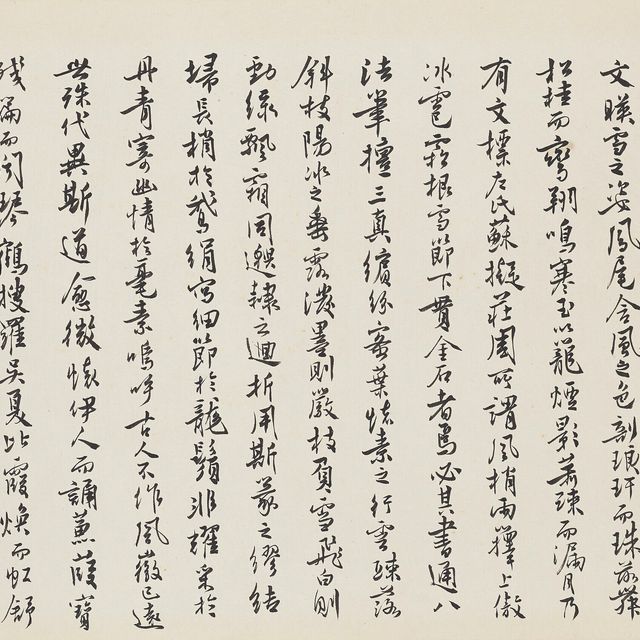 文暎雪之姿鳳尾含風之色剖琅玕而珠蕊舞
松桂而鸞翔鳴寒玉以籠煙影蕭疎而漏月乃
有文摽左氏蘇擬莊周所謂風梢雨籜上傲
冰雹霜根雪節下貫金石者焉必其書通八
法筆擅三真繽紛密葉懷素之行雲踈落
斜枝陽冰之垂露潑墨則嚴枝負雪飛白則
勁綠飄霜同邈隸之迴折用斯篆之繆結
埽長梢於鵞絹寫細節於龍鬚非耀采於
丹青寄幽情於毫素嗚呼古人不作風徽已遠
世殊代異斯道愈微懷伊人而誦蒹葭寶
殘編而引琴鶴搜羅吳夏比霞煥而虹舒